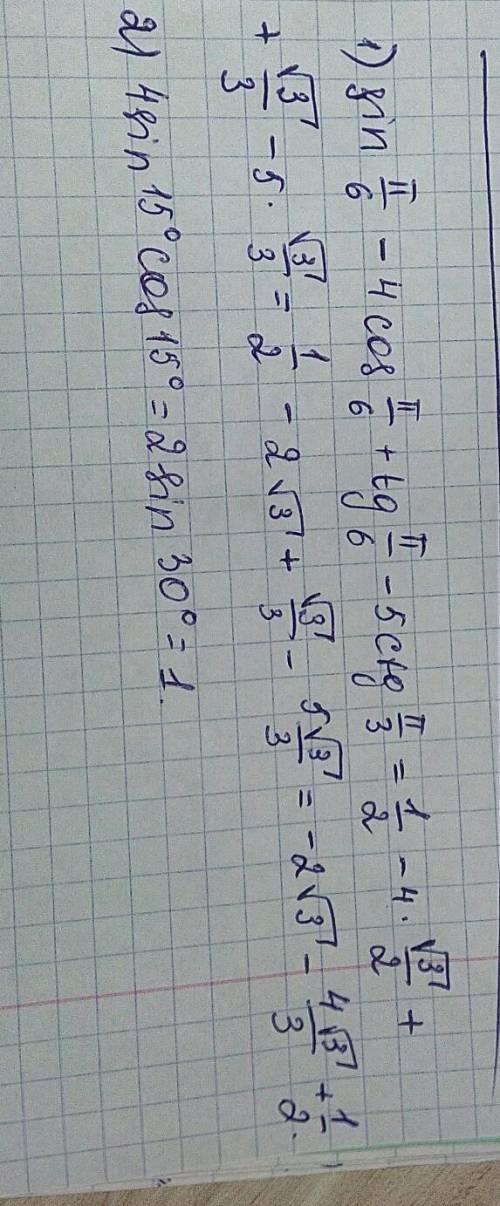 1) sin π/6 - 4cos π/6 + tg π/6 - 5ctg π/3 = 1/2 - 4·√3/2 +
+ √3/3 - 5·√3/3 = 1/2 - 2√3 + √3/3 - 5√3/3 = -2√3 - 4√3/3 + 1/2.
2) 4sin 15° cos 15° = 2sin 30° = 1.